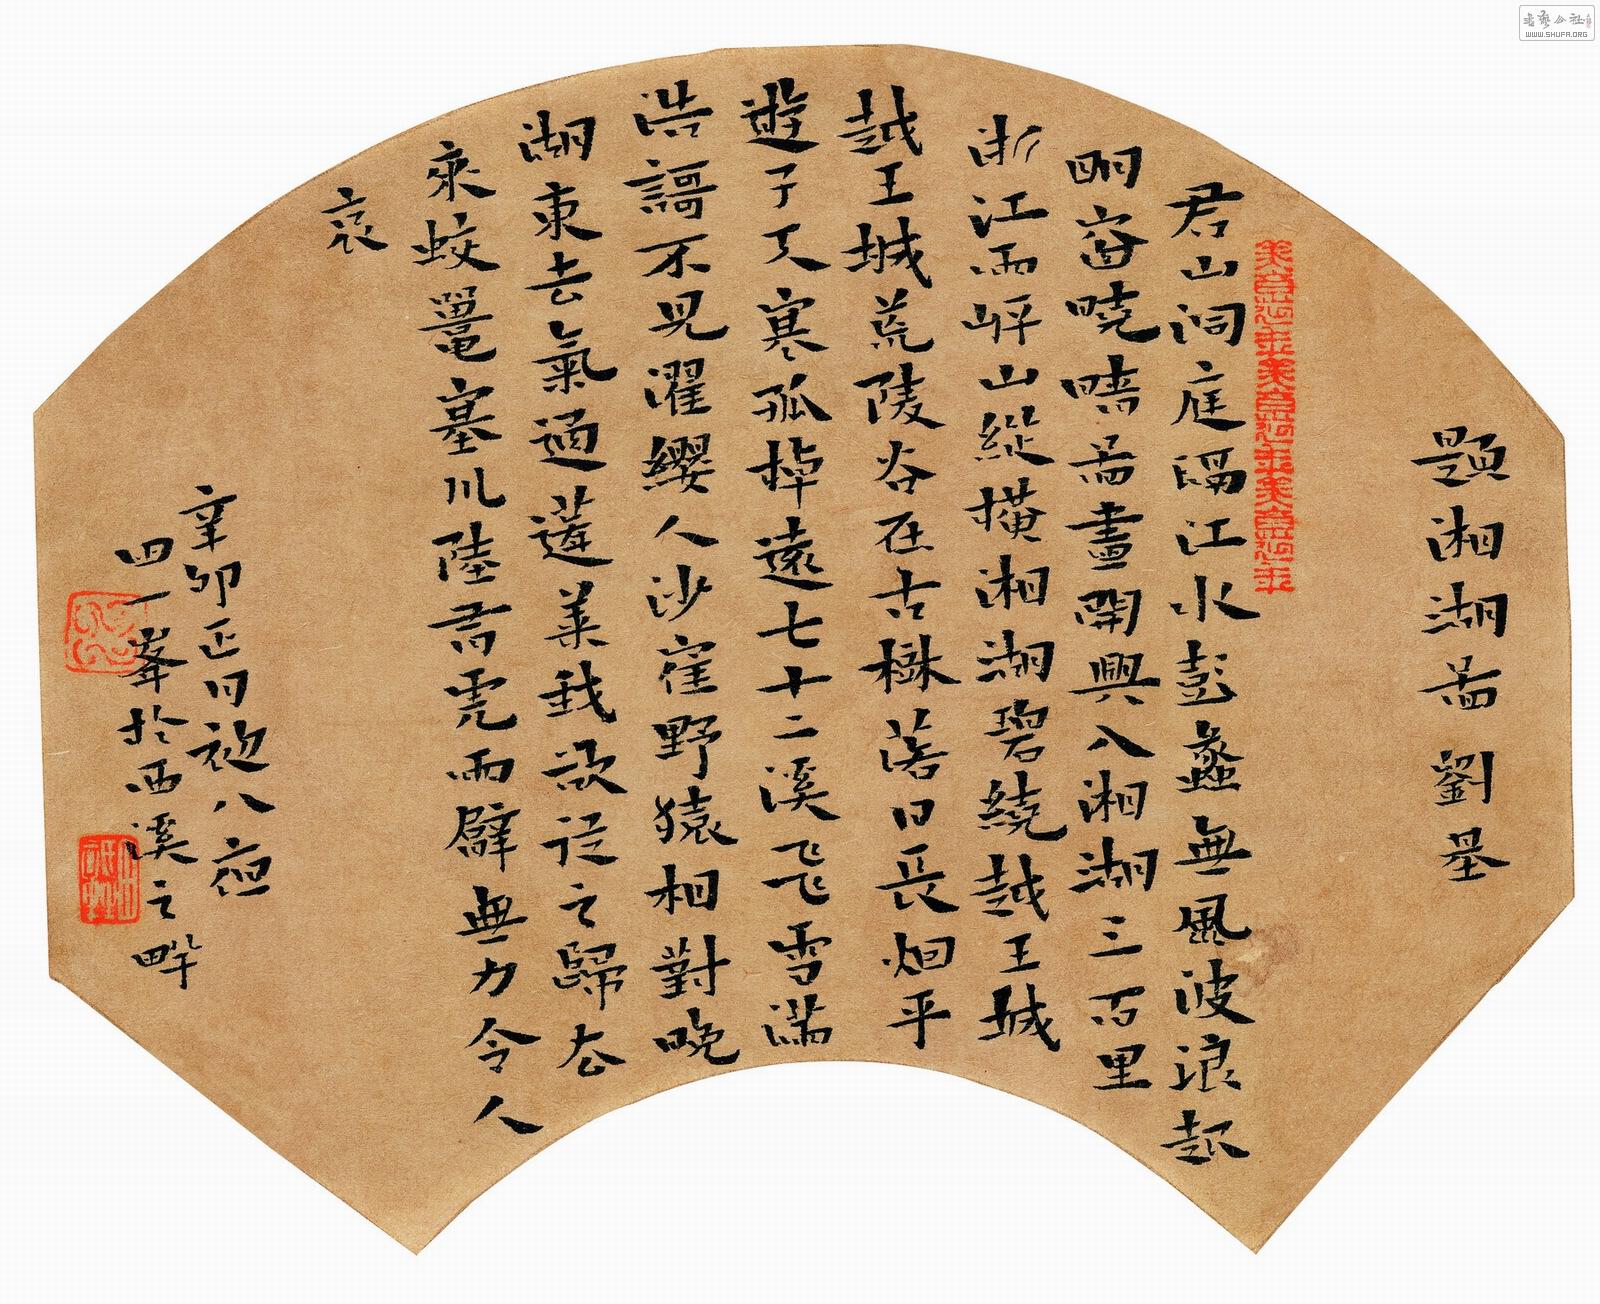 題湘湖啚劉基
君山洞庭隔江水彭蠡無風波浪起
明窗曉晴啚畫開興入湘湖三百里
浙江兩岸山縱橫湘湖碧繞越王城
越王城荒陵谷在古樹落日長烟平
遊子天寒孤棹遠七十二溪飛雪滿
浩謌不見濯纓人沙寉野猿相對晚
湖東去氣通蓬萊我欲從之歸去
來蛟鼉塞川陸有虎兩臂無力令人
哀
辛卯正月初八夜
四一峯於西溪之畔
書藝公社
WWW.SHUFA.ORG